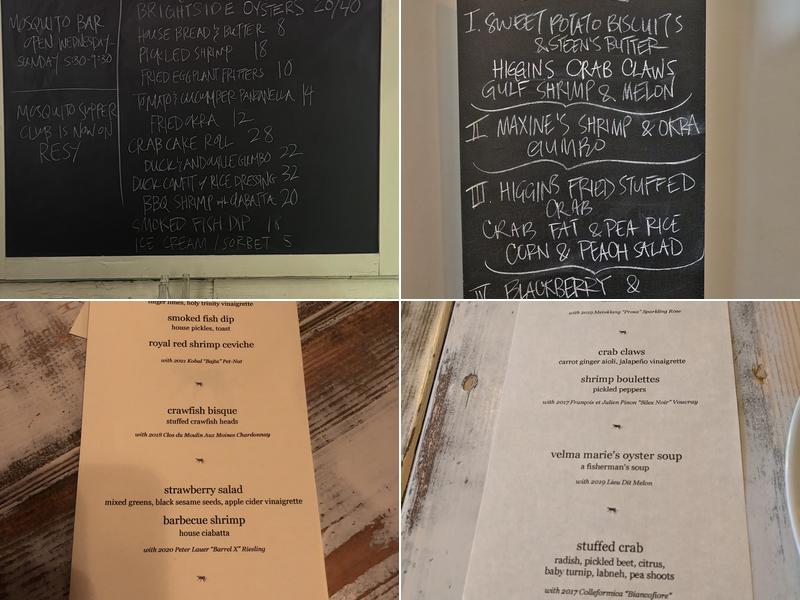 MOSQUITO BAR
OPEN WEDNESDAY-
SUNDAY 5:30-9:30
MOSQUITO SUPPER
CLUB IS NOW ON
RESY
BRIGHTSIDE OYSTERS 20/40
HOUSE BREAD & BUTTER 8
PICKLED SHRIMP 18
FRIED EGGPLANT FRITTERS 10
TOMATO & CUCUMBER PANZANELLA 14
FRIED OKRA 12
CRAB CAKE ROLL 28
DUCK & ANDOUILLE GUMBO 22
DUCK CONFIT & RICE DRESSING 32
BBQ SHRIMP CIABATTA 20
SMOKED FISH DIP 18
ICE CREAM / SORBET 5
I. SWEET POTATO BISCUITS
& STEEN'S BUTTER
HIGGINS CRAB CLAWS
GULF SHRIMP & MELON
II MAXINE'S SHRIMP & OKRA
GUMBO
III. HIGGINS FRIED STUFFED
CRAB
CRAB FAT & PEA RICE
CORN & PEACH SALAD
IV BLACKBERRY &
finger limes, holy trinity vinaigrette
smoked fish dip
house pickles, toast
royal red shrimp ceviche
with 2021 Kobal "Bajta" Pet-Nat
crawfish bisque
stuffed crawfish heads
with 2018 Clos du Moulin Aux Moines Chardonnay
strawberry salad
mixed greens, black sesame seeds, apple cider vinaigrette
barbecue shrimp
house ciabatta
with 2020 Peter Lauer "Barrel X" Riesling
with 2019 Meinklang "Prosa" Sparkling Rose
crab claws
carrot ginger aioli, jalapeño vinaigrette
shrimp boulettes
pickled peppers
with 2017 François et Julien Pinon "Silex Noir" Vouvray
velma marie's oyster soup
a fisherman's soup
with 2019 Lieu Dit Melon
stuffed crab
radish, pickled beet, citrus,
baby turnip, labneh, pea shoots
with 2017 Colleformica "Biancofiore"